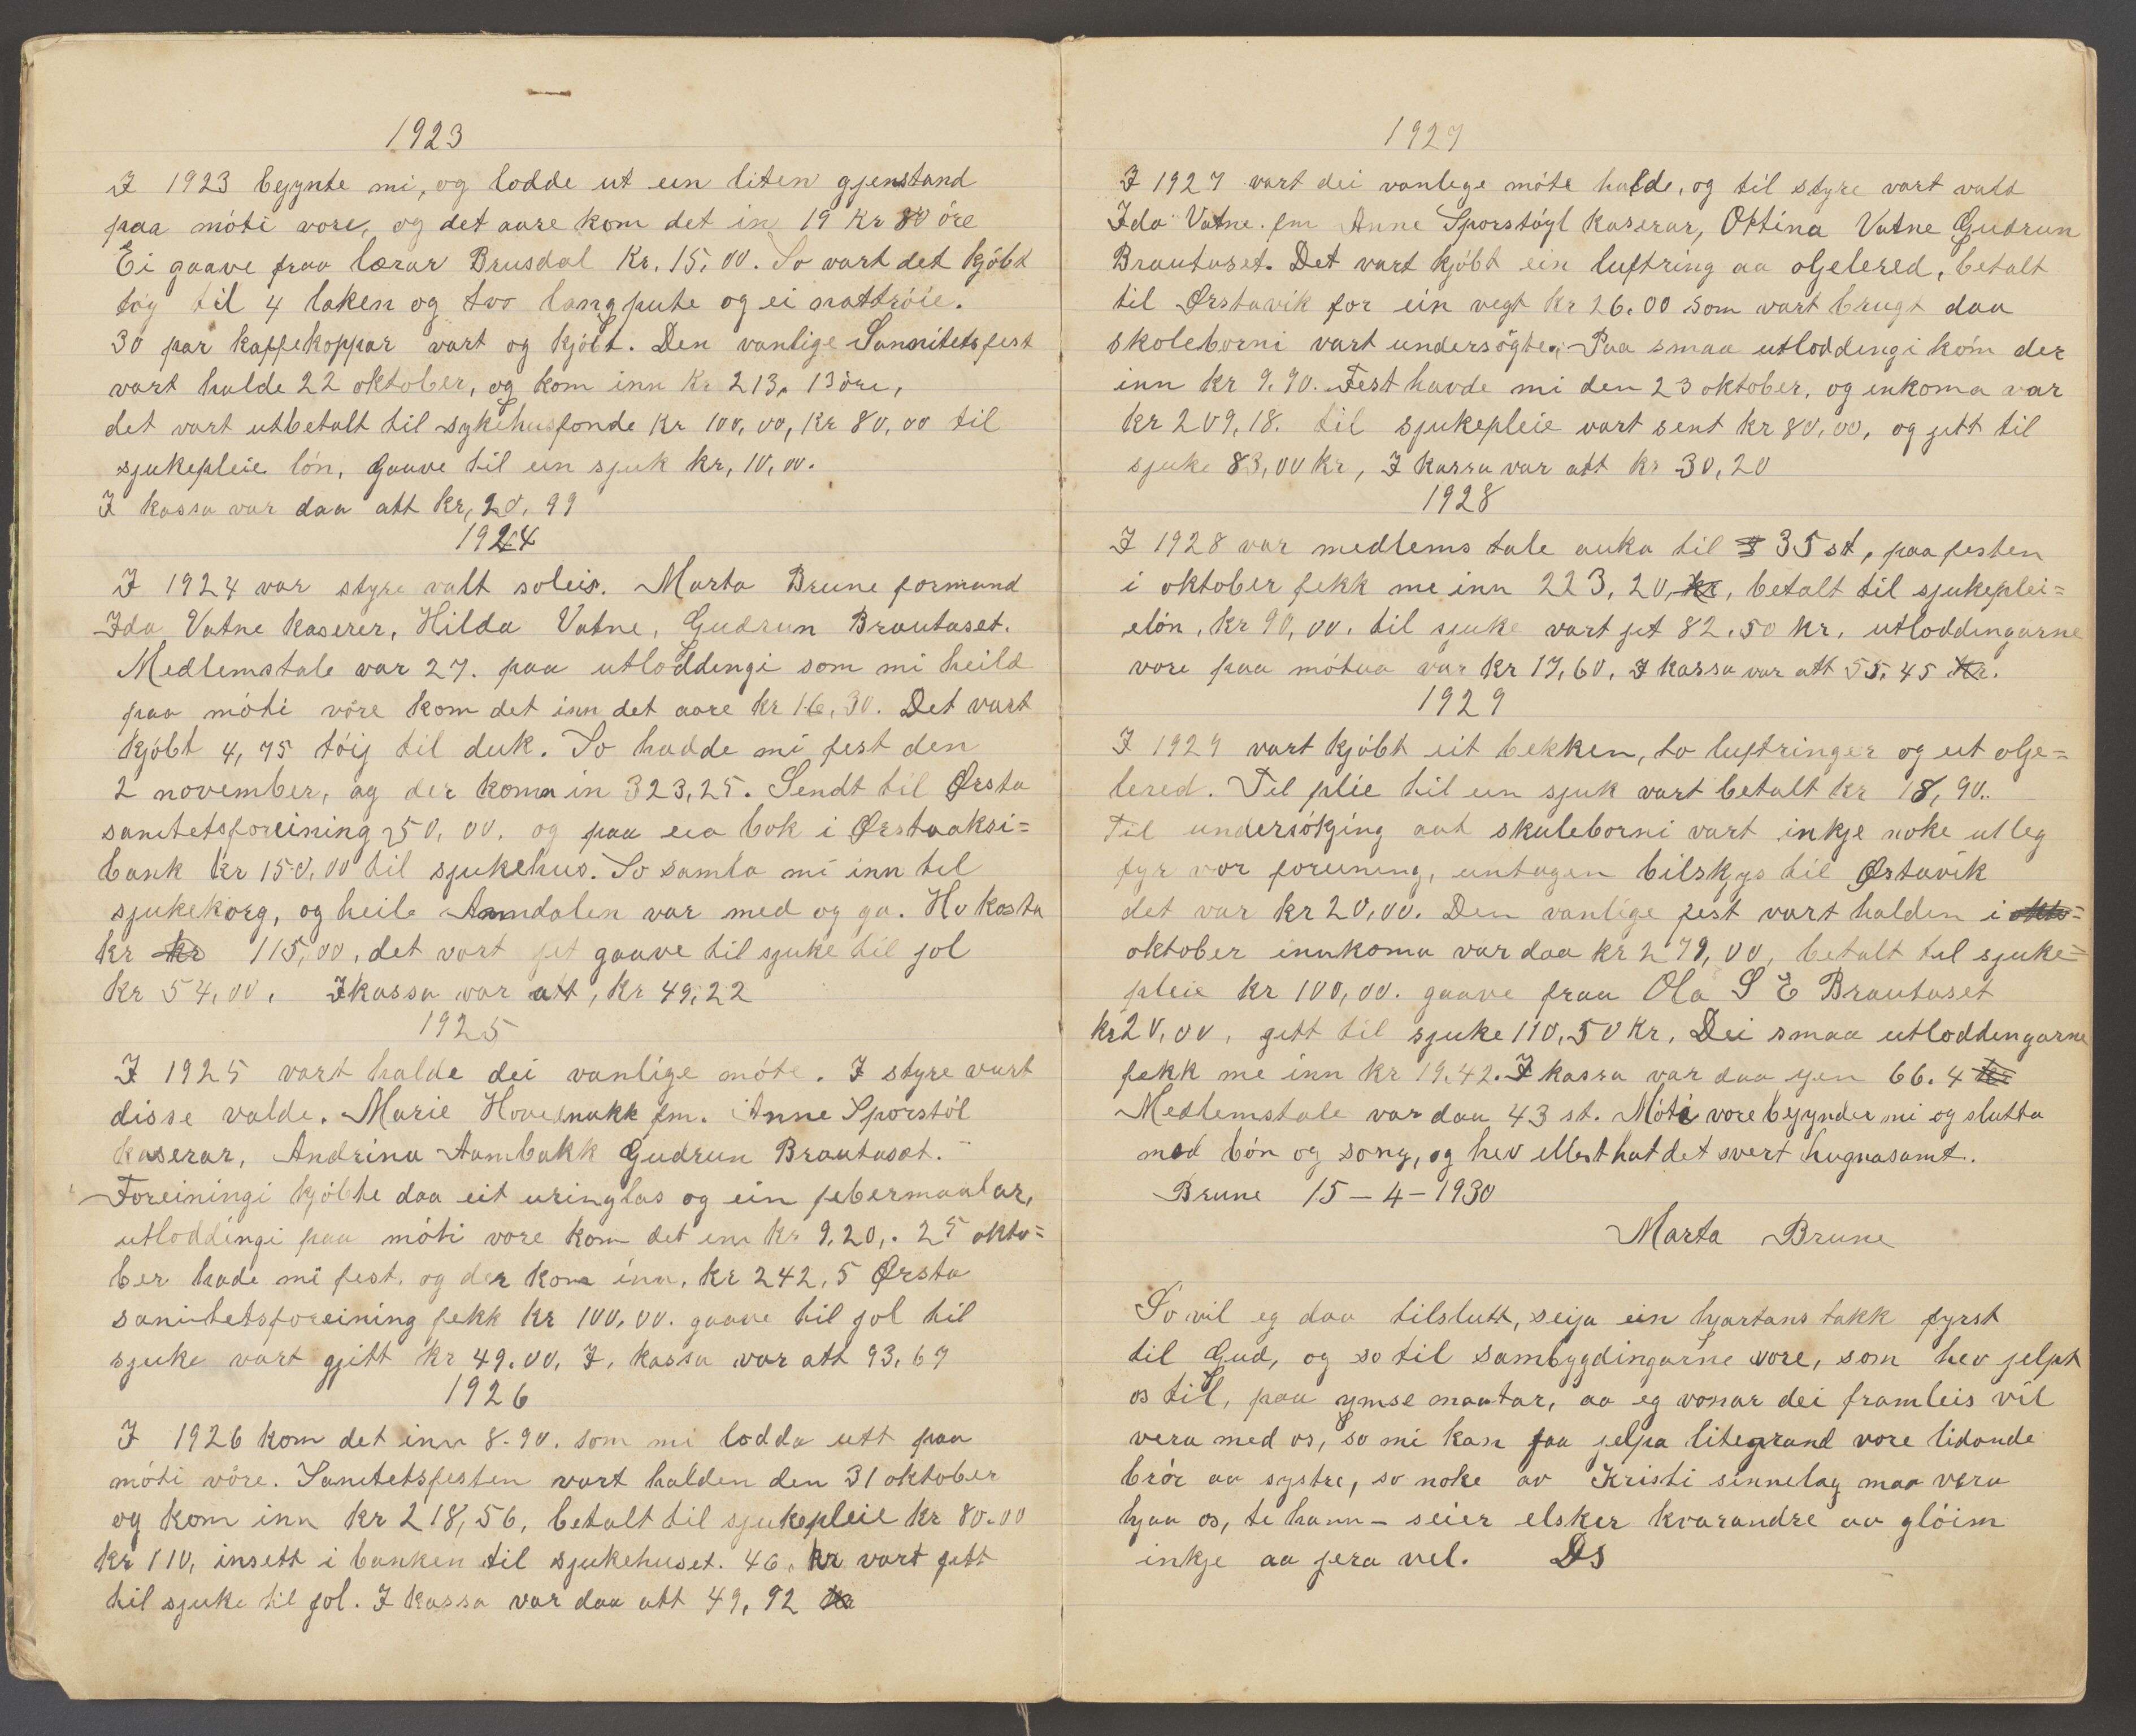 1923
I 1923 begynte mi, og lodde ut ein liten gjenstand
paa móti vore, og det aare kom det in 19 Kr 80 öre
Ei gaave fraa lærar Brusdal Kr. 15,00. So vart det kjóbt
tóy til 4 laken og tvo langpute og ei nattróie.
30 par kaffekoppar vart og kjóbt. Den vanlige Sannitetsfest
vart halde 22 oktober, og kom inn Kr 213, 13 öre,
det vart utbetalt til sykehusfonde Kr 100,00, Kr 80,00 til
sjukepleie lón, gaave til ein sjuk kr, 10,00.
I kassa var daa att kr, 20,99
1924
I 1924 var styre valt soleis. Marta Brune formand
Ida Vatne kaserer, Hilda Vatne, Gudrun Brautaset.
Medlemstale var 27. paa utloddingi som mi heild
paa móti vöre kom det inn det aare kr 16,30. Det vart
kjóbt 4,75 tóij til duk. So hadde mi fest den
2 november, ag der koma in 323,25. Sendt til Ørsta
sanitetsforeining 50,00. og paa eia bok i Ørstaaksi=
bank kr 150,00 til sjukehus. So samla mi inn til
sjukekorg, og heile Aamdalen var med og ga. Ho kosta
kr kr 115,00, det vart jet gaave til sjuke til jol
kr 54,00. Ikassa var att, kr 49,22
1925
I 1925 vart halde dei vanlige móte. I styre vart
disse valde. Marie Hovednakk fm. Anne Sporstól
kaserar, Andrina Aambakk Gudrun Brautaset.
Foreiningi kjóbte daa eit uringlas og ein febermaalar,
utloddingi paa móti vore kom det inn kr 9,20,. 25 okto=
ber hade mi fest, og der kom inn, kr 242,5 Ørsta
sanitetsforeining fekk kr 100,00. gaave til jol til
sjuke vart gjitt kr 49.00, I, kassa var att 93,67
1926
I 1926 kom det inn 8-90. som mi lodda utt paa
móti vöre. Sanitetsfesten vart halden den 31 oktober
og kom inn kr 218,56, betalt til sjukepleie kr 80.00
kr 110, insett i banken til sjukehuset. 46, kr vart jett
til sjuke til jol. I kassa var daa att 49,92 kr
1927
I 1927 vart dei vanlege móte halde, og til styre vart valt
Ida Vatne. fm Anne Sporstóyl kaserar, Oktina Vatne Gudrun
Brautaset. Det vart kjóbt ein luftring aa oljelered, betalt
til Ørstavik for ein vegt kr 26.00 som vart brugt daa
skoleborni vart undersögte. Paa smaa utloddingi kom der
inn kr 9.90. Fest havde mi den 23 oktober, og enkoma var
kr 209,18. til sjukepleie vart sent kr 80,00, og jett til
sjuke 83,00 kr, I kassa var att kr 30,20
1928
I 1928 var medlems tale auka til 3 35 st, paa festen
i oktober fekk me inn 223,20, kr, betalt til sjukeplei=
elón, kr 90,00. til sjuke vart jet 82.50 kr. utloddingarne
vore paa mótaa var kr 17,60, I kassa var att 55,45 kr.
1929
I 1929 vart kjóbt eit bekken, to luftringer og ut olje=
lered. Til plie til ein sjuk vart betalt kr 18,90..
til undersókjing aat skuleborni vart inkje noke utleg
fyr vor foreining, untagen bilskys til Østavik
det var kr 20,00. Den vanlige fest vart halden i okto=
oktober innkoma var daa kr 279,00, betalt til sjuke=
pleie kr 100,00. gaave fraa Ola S E Brautaset
kr 20,00, gett til sjuke 110,50 kr, Dei smaa utloddingarne
fekk me inn kr 19.42. I kassa var daa ijen 66.4 kr
Medlemstale var daa 43 st. Móti vore begynder mi og slutta
med bón og song, og hev ellest hat det svert hugnasamt.
Brune 15-4-1930
Marta Brune
So vil eg daa tilslutt, seija ein hjartans takk fyrst
til Gud, og so til sambygdingarne vore, som hev jelpt
os til, paa ymse maatar, aa eg vonar dei framleis vil
vera med os, so mi kan faa jelpa litegrand vore lidande
brór aa systre, so noke av Kristi sinnelag maa vera
hjaa os, te hann- seier elsker kvarandre aa glóim
inkje aa jera vel. Ds